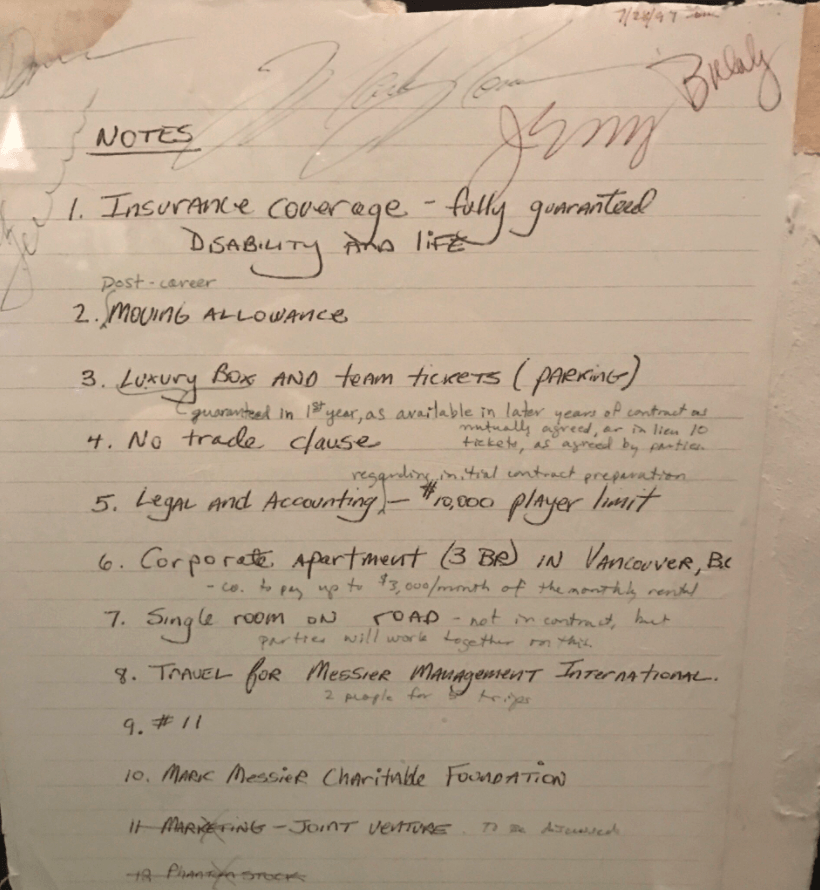 7/28/97
NOTES
1. Insurance coverage - fully guaranteed
Disability and life
post-career
2. Moving Allowance
3. Luxury Box and team tickets (parking)
guaranteed in 1st year, as available in later years of contract as
mutually agreed, or in lieu 10
tickets, as agreed by parties.
4. No trade clause
regarding initial contract preparation
5. Legal and Accounting - $10,000 player limit
6. Corporate apartment (3 BR) in Vancouver, BC
- co. to pay up to $3,000/month of the monthly rental
7. Single room on road - not in contract, but
parties will work together on this.
8. Travel for Messier Management International.
2 people for trips
9. #11
10. Mark Messier Charitable Foundation
11 Marketing - Joint Venture. To be discussed
12 Phantom stock